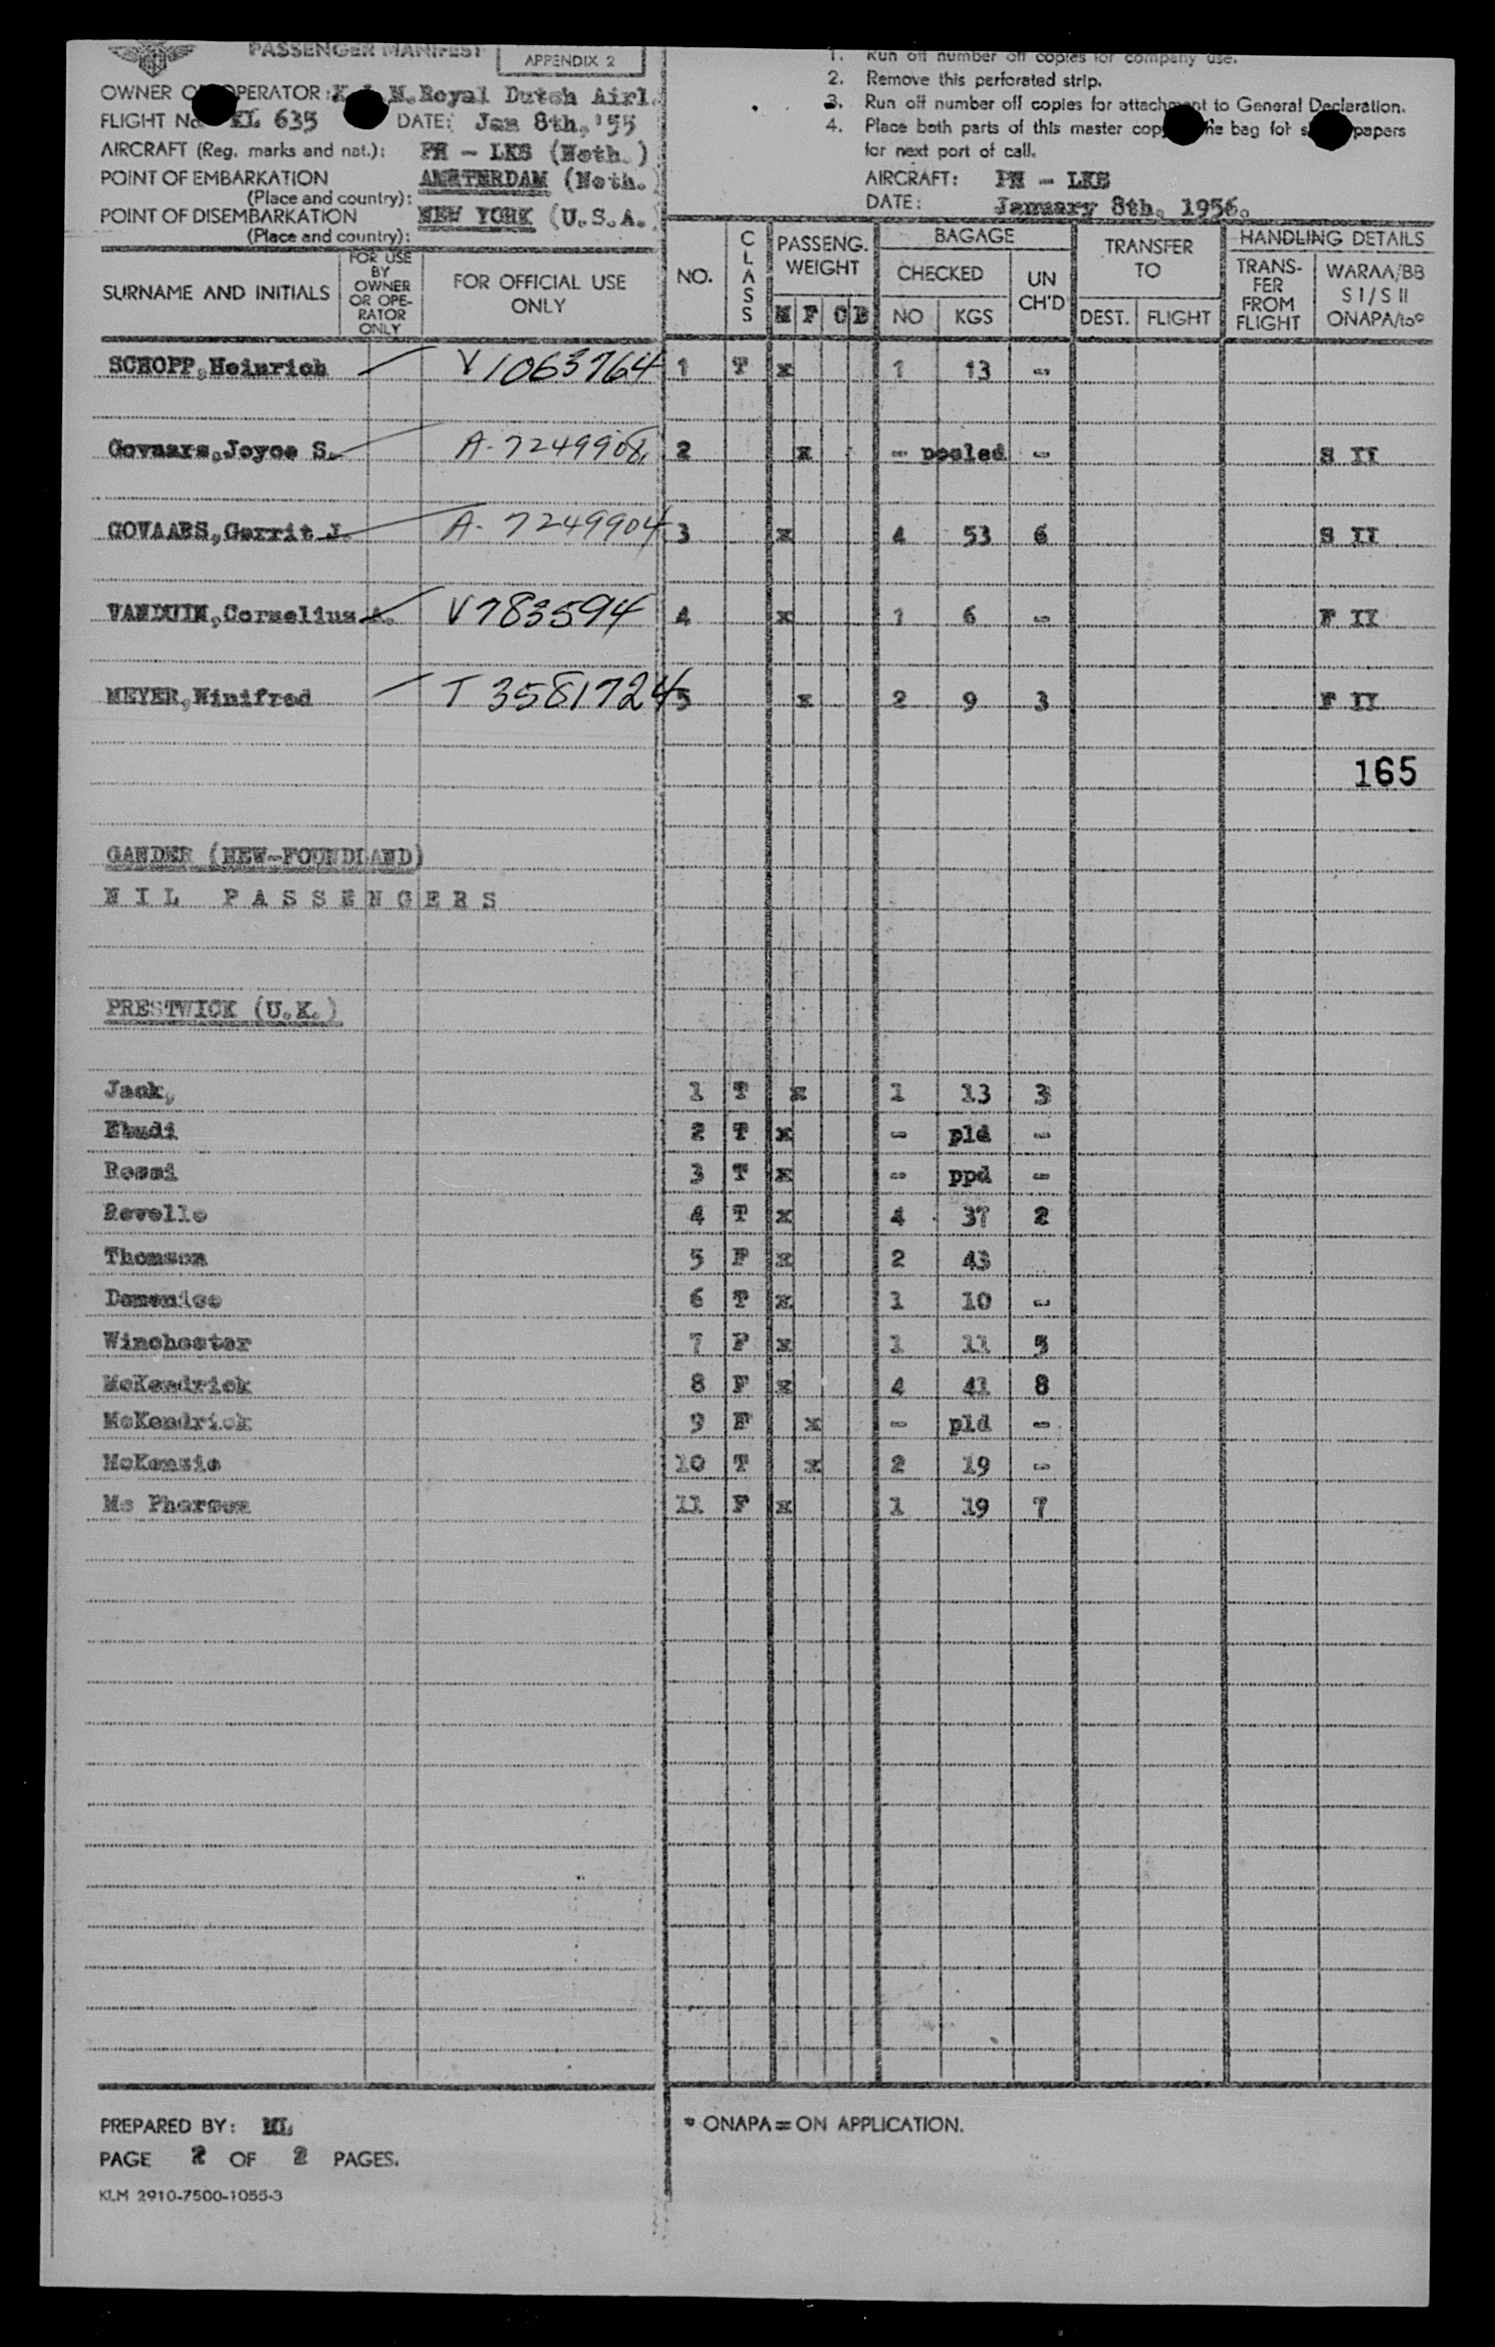 PASSENGER MANIFEST
APPENDIX 2
OWNER OPERATOR: K.L.M. Royal Dutch Airl.
FLIGHT No KL 635 DATE: Jan 8th, '55
AIRCRAFT (Reg. marks and nat.): PH - LKS (Neth.)
POINT OF EMBARKATION AMSTERDAM (Neth.
(Place and country):
POINT OF DISEMBARKATION NEW YORK (U.S.A.
(Place and country):
1. Run off number off copies for company use.
2. Remove this perforated strip.
3. Run off number off copies for attachment to General Declaration.
4. Place both parts of this master cop bag for papers
for next port of call.
AIRCRAFT: PH - LKS
DATE: January 8th, 1956.
SURNAME AND INITIALS
FOR USE BY OWNER OR OPERATOR ONLY
FOR OFFICIAL USE ONLY
NO. CLASS PASSENG. WEIGHT M F C B
BAGAGE CHECKED NO KGS UN CH'D
TRANSFER TO DEST. FLIGHT
HANDLING DETAILS TRANSFER FROM FLIGHT WARAA/BB S I / S II ONAPA/to*
SCHOPP, Heinrich V1063764 1 T x 1 13 -
Govaars, Joyce S. A-7249908 2 x - pooled - S II
GOVAARS, Gerrit J. A-7249904 3 x 4 53 6 S II
VANDUIN, Cornelius A. V783594 4 x 1 6 - F II
MEYER, Winifred T 3581724 5 x 2 9 3 F II
165
GANDER (NEW-FOUNDLAND)
NIL PASSENGERS
PRESTWICK (U.K.)
Jack, 1 T x 1 13 3
2 T x - pld -
Rossi 3 T x - ppd -
Revello 4 T x 4 37 2
Thomson 5 F x 2 43
Domenico 6 T x 1 10 -
Winchester 7 F x 1 11 5
McKendrick 8 F x 4 41 8
McKendrick 9 F x - pld -
McKenzie 10 T x 2 19 -
Mc Pherson 11 F x 1 19 7
PREPARED BY: ML
PAGE 2 OF 2 PAGES.
KLM 2910-7500-1055-3
* ONAPA = ON APPLICATION.